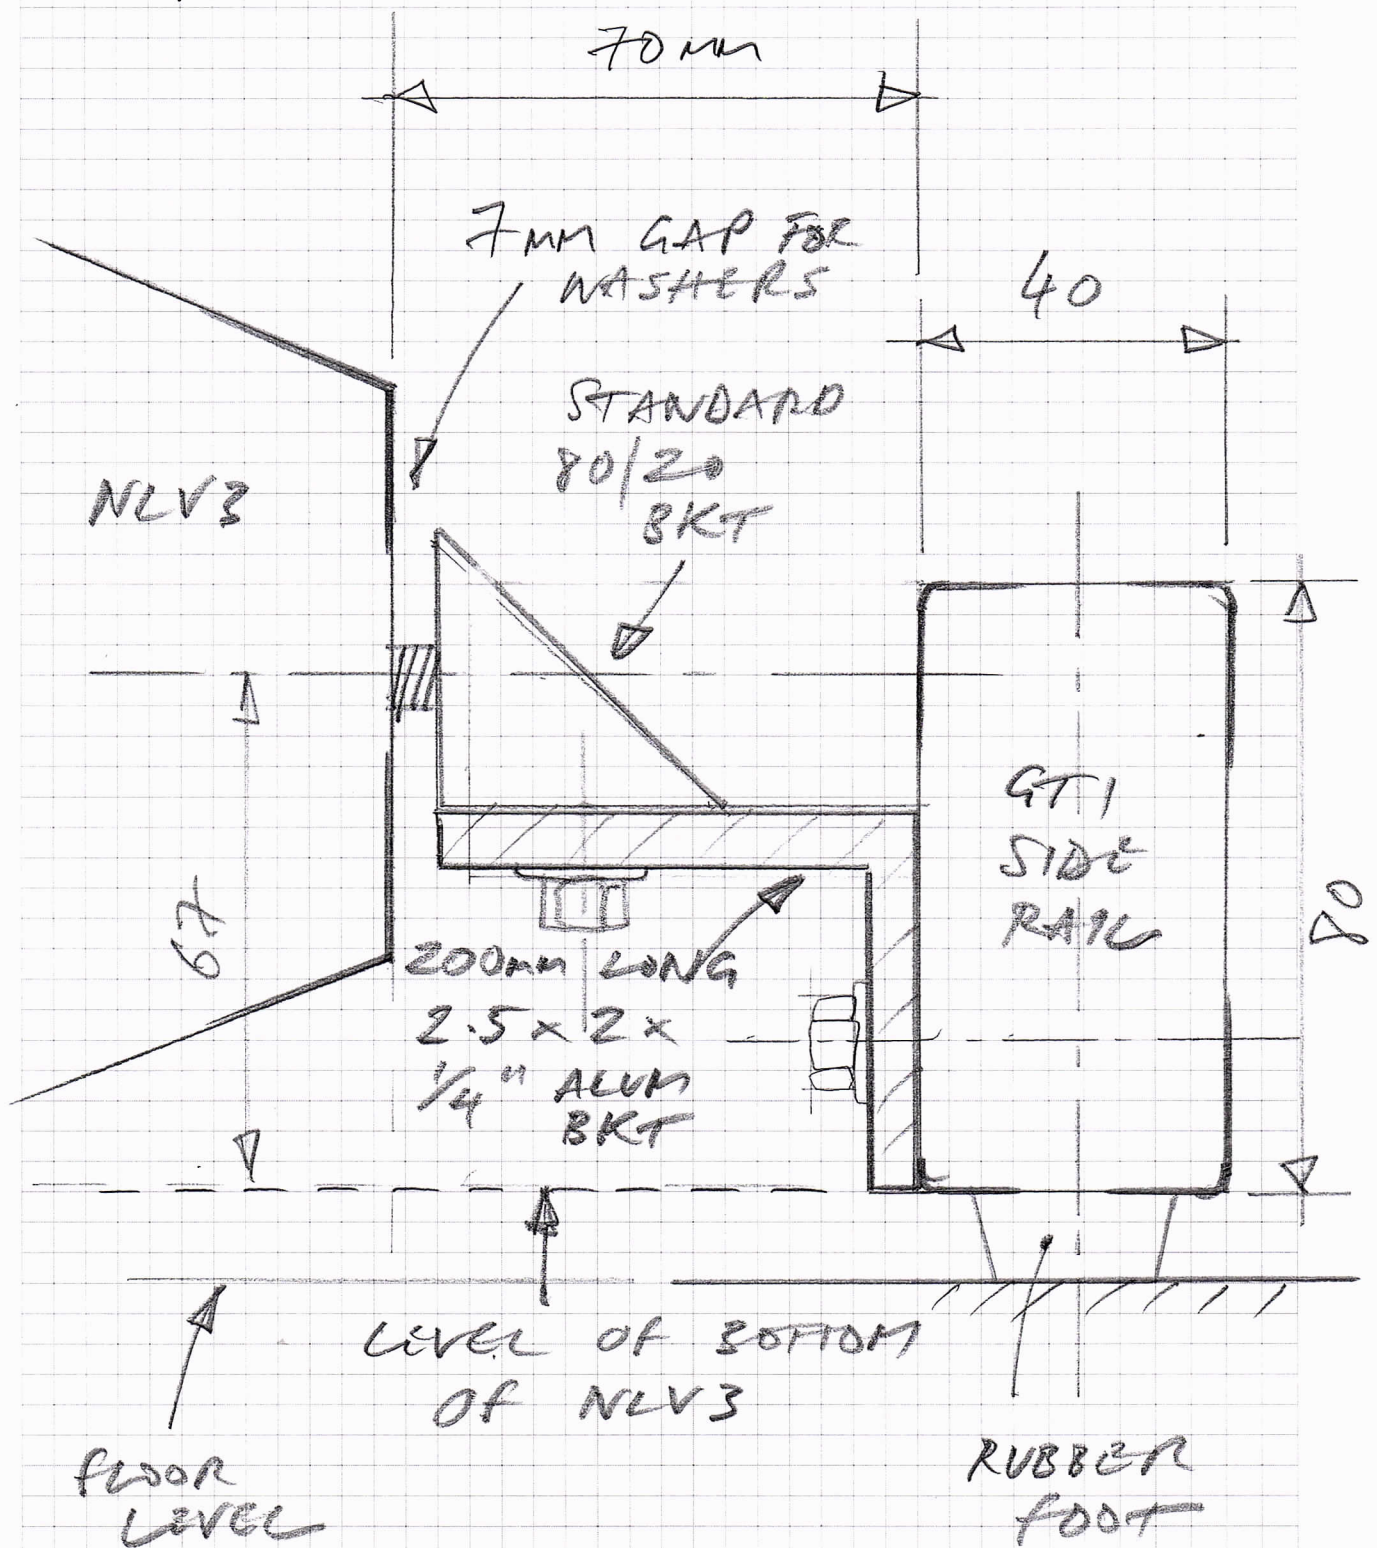 70MM
7MM GAP FOR
WASHERS
40
STANDARD
80/20
BKT
NLV3
GT1
SIDE
RAIL
67
80
200MM LONG
2.5 x 2 x
1/4" ALUM
BKT
LEVEL OF BOTTOM
OF NLV3
FLOOR
LEVEL
RUBBER
FOOT